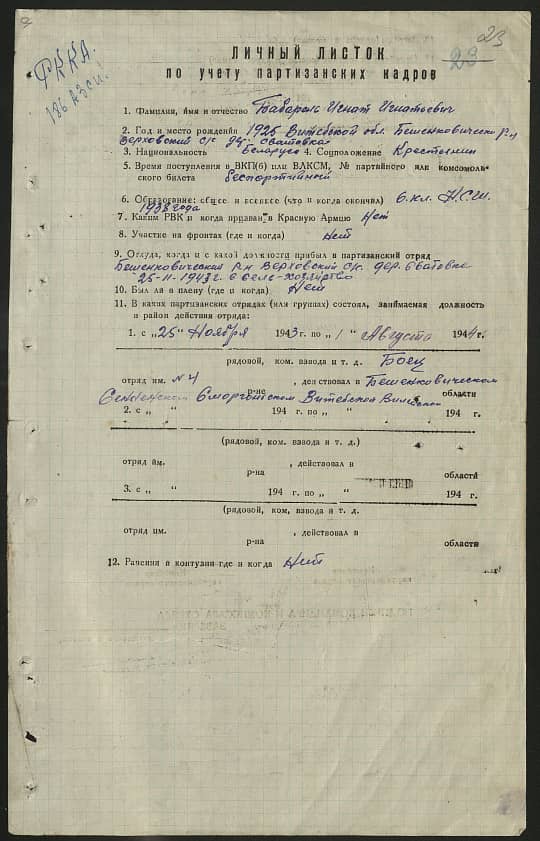 23
23
РККА.
186 АЗСП
ЛИЧНЫЙ ЛИСТОК
по учету партизанских кадров
1. Фамилия, имя и отчество Бабароль Игнат Игнатьевич
2. Год и место рождения 1925 Витебской обл. Бешенковичск р-н
Верховский с/с д. Сватовка
3. Национальность Беларус 4. Соцположение Крестьянин
5. Время поступления в ВКП(б) или ВЛКСМ, № партийного или комсомоль-
ского билета беспортийный
6. Образование: общее и военное (что и когда окончил) 6. кл. Н.С.Ш.
1938 года
7. Каким РВК и когда призван в Красную Армию Нет
8. Участие на фронтах (где и когда) Нет
9. Откуда, когда и с какой должности прибыл в партизанский отряд
Бешенковический р-н Верховский с/с. дер. Сватовка
25-11-1943 г. с сель-хозяйство
10. Был ли в плену (где и когда) Нет
11. В каких партизанских отрядах (или группах) состоял, занимаемая должность
и район действия отряда:
1. с „25" Ноября 1943 г. по „1" Августа 1944 г.
рядовой, ком. взвода и т. д. Боец
отряд им. № 4 р-не , действовал в Бешенковическом
Сенненском Сморгонском Витебской области
2. с „ " 194 г. по „ " 194 г.
(рядовой, ком. взвода и т. д.)
отряд им. р-на , действовал в области
3. с „ " 194 г. по „ " 194 г.
(рядовой, ком, взвода и т. д.
отряд им. р-на , действовал в области
12. Ранения и контузии где и когда Нет